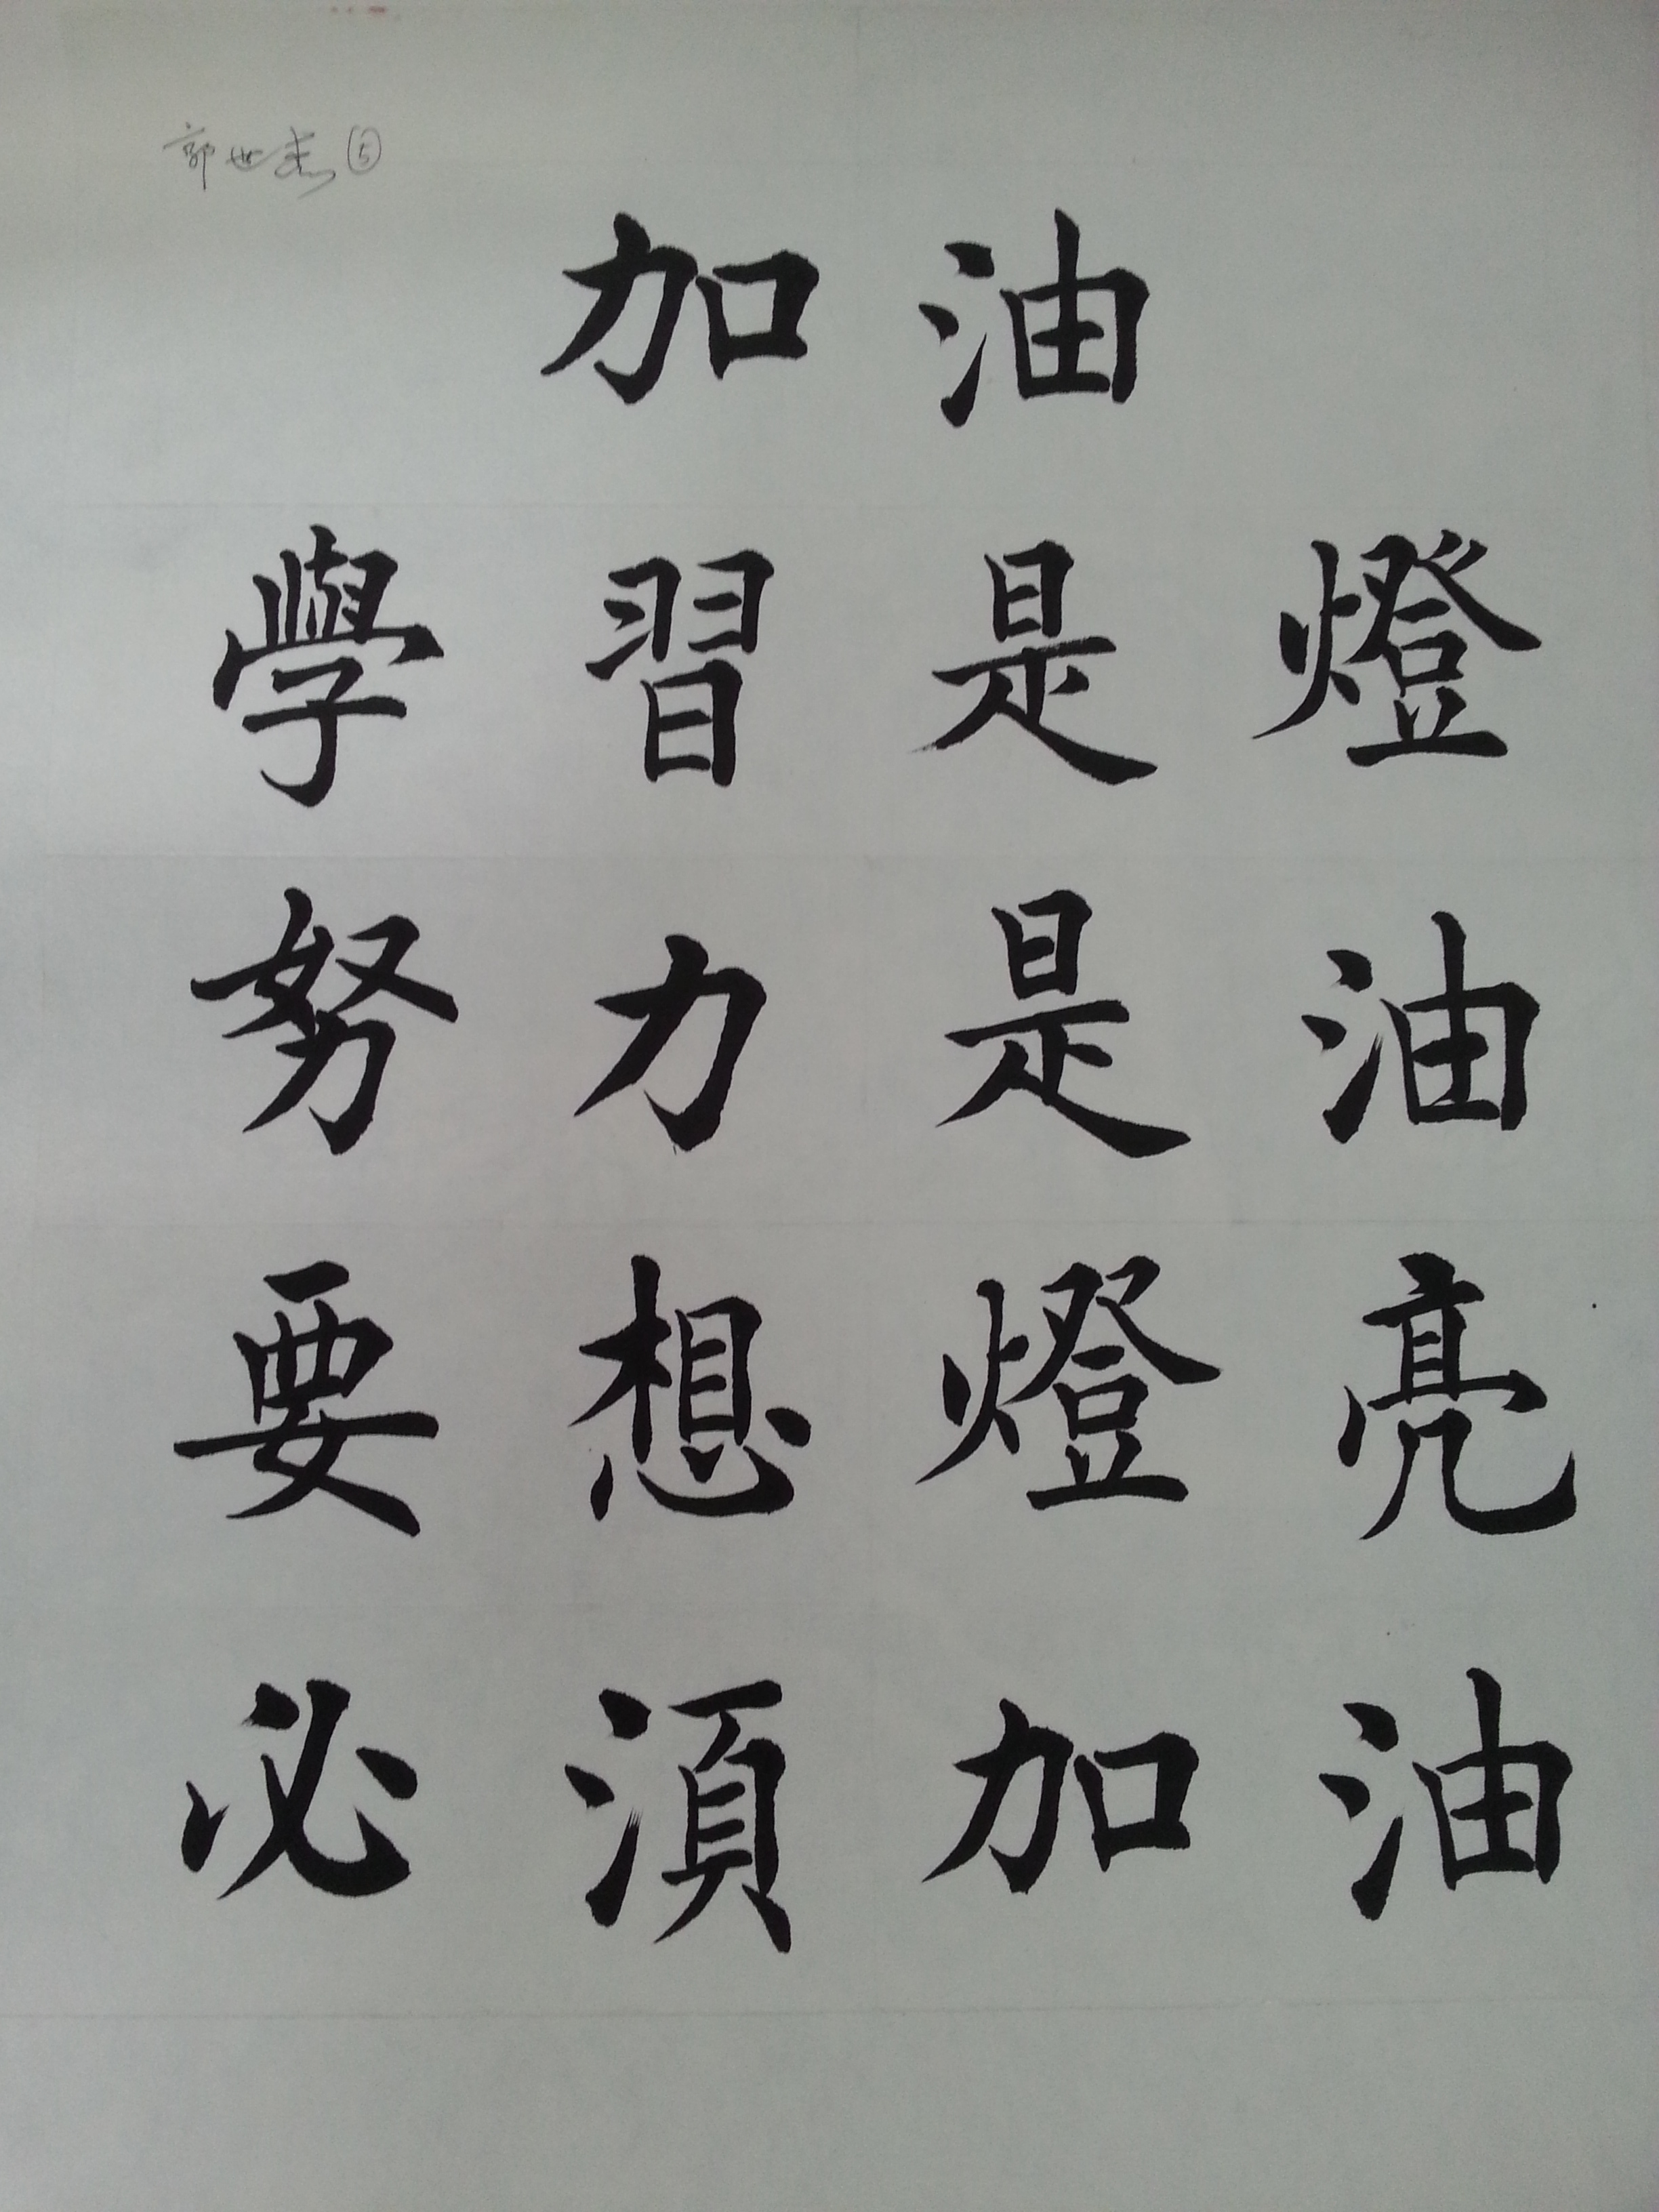 郭世杰⑤
加油
學習是燈
努力是油
要想燈亮
必湏加油